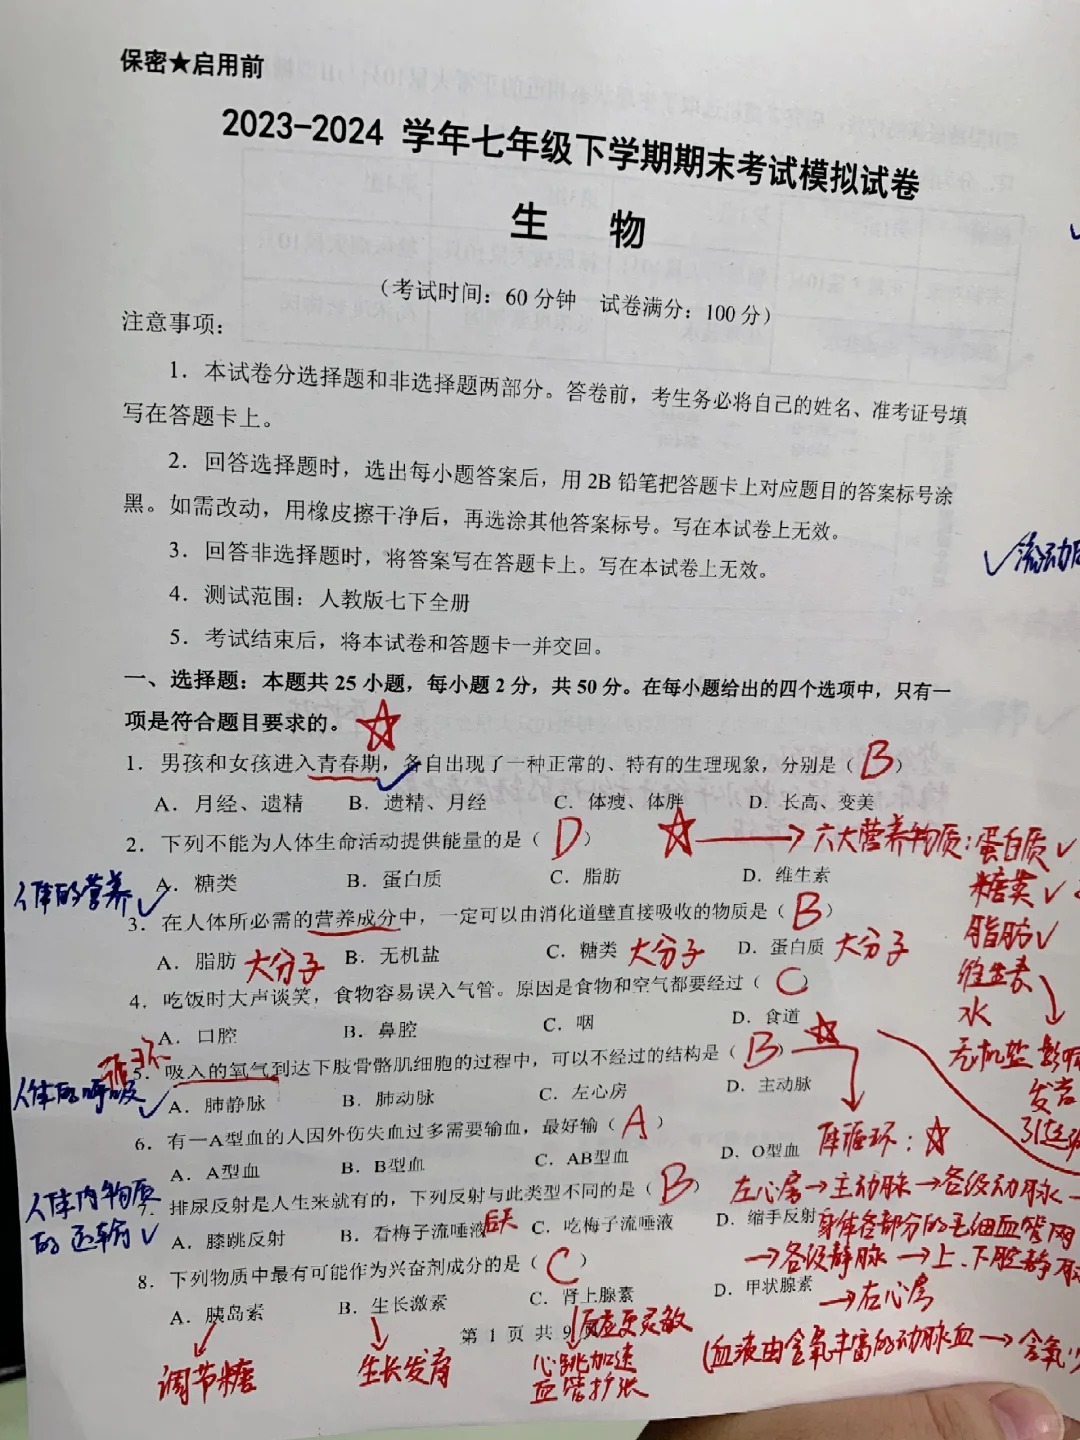 保密★启用前
2023-2024 学年七年级下学期期末考试模拟试卷
生 物
（考试时间：60 分钟 试卷满分：100 分）
注意事项：
1．本试卷分选择题和非选择题两部分。答卷前，考生务必将自己的姓名、准考证号填
写在答题卡上。
2．回答选择题时，选出每小题答案后，用 2B 铅笔把答题卡上对应题目的答案标号涂
黑。如需改动，用橡皮擦干净后，再选涂其他答案标号。写在本试卷上无效。
3．回答非选择题时，将答案写在答题卡上。写在本试卷上无效。
✓流动
4．测试范围：人教版七下全册
5．考试结束后，将本试卷和答题卡一并交回。
一、选择题：本题共 25 小题，每小题 2 分，共 50 分。在每小题给出的四个选项中，只有一
项是符合题目要求的。
1．男孩和女孩进入青春期，各自出现了一种正常的、特有的生理现象，分别是（ B ）
A．月经、遗精 B．遗精、月经 C．体瘦、体胖 D．长高、变美
2．下列不能为人体生命活动提供能量的是（ D ）
☆→六大营养物质：蛋白质✓
糖类✓
脂肪✓
维生素
水
无机盐
影响
发育
人体的营养✓
A．糖类 B．蛋白质 C．脂肪 D．维生素
3．在人体所必需的营养成分中，一定可以由消化道壁直接吸收的物质是（ B ）
A．脂肪 大分子 B．无机盐 C．糖类 大分子 D．蛋白质 大分子
4．吃饭时大声谈笑，食物容易误入气管。原因是食物和空气都要经过（ C ）
A．口腔 B．鼻腔 C．咽 D．食道
人体的呼吸✓
5．吸入的氧气到达下肢骨骼肌细胞的过程中，可以不经过的结构是（ B ）
A．肺静脉 B．肺动脉 C．左心房 D．主动脉
6．有一A型血的人因外伤失血过多需要输血，最好输（ A ）
A．A型血 B．B型血 C．AB型血 D．O型血
体循环：☆
左心房→主动脉→各级动脉→
身体各部分的毛细血管网
→各级静脉→上、下腔静脉
→右心房
（血液由含氧丰富的动脉血→含氧少
人体内物质
的运输✓
7．排尿反射是人生来就有的，下列反射与此类型不同的是（ B ）
A．膝跳反射 B．看梅子流唾液 后天 C．吃梅子流唾液 D．缩手反射
8．下列物质中最有可能作为兴奋剂成分的是（ C ）
A．胰岛素 B．生长激素 C．肾上腺素 D．甲状腺素
调节糖
生长发育
反应更灵敏
心跳加速
血管扩张
第 1 页 共 9 页